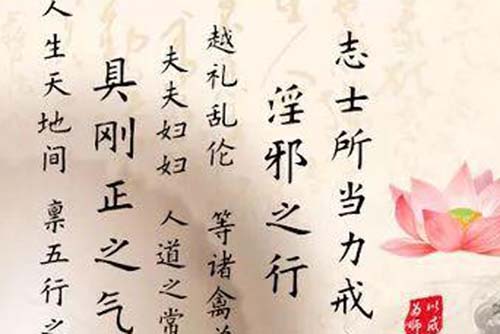 志士所当力戒
淫邪之行
越礼乱伦 等诸禽
夫夫妇妇 人道之常
具刚正之气
人生天地间 禀五行之
以戒
为师